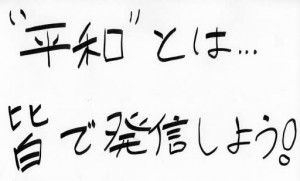 “平和”とは…
皆で発信しよう!